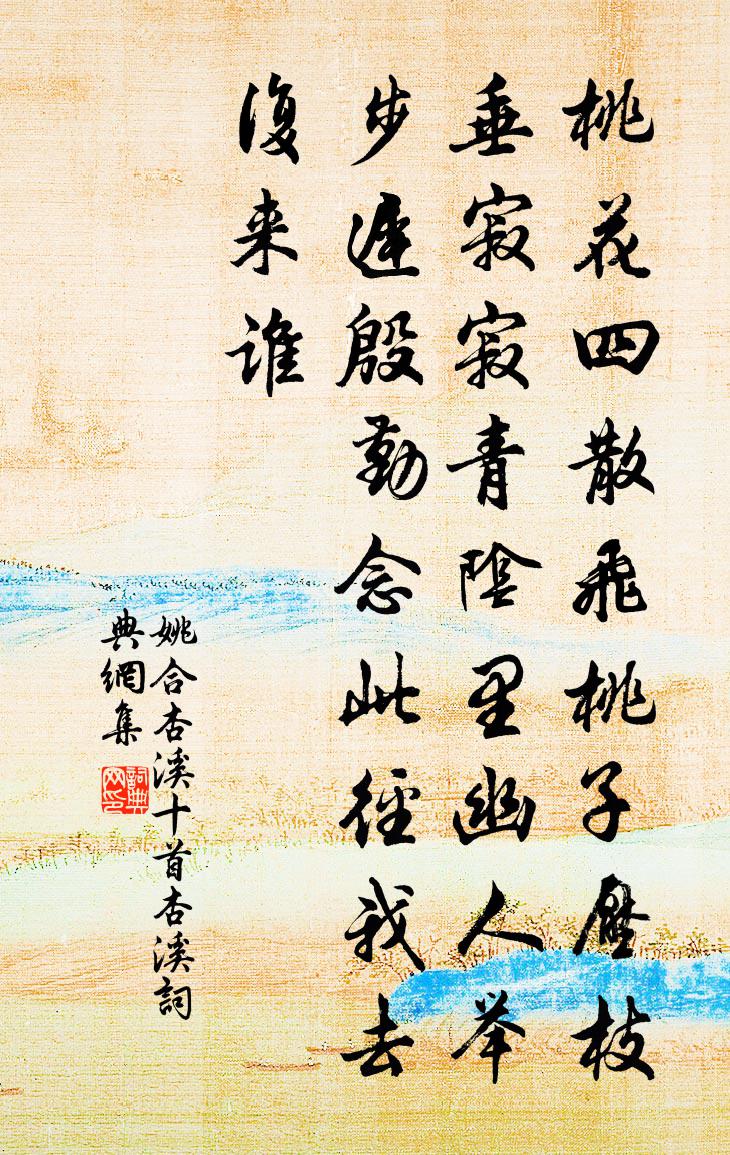 桃花四散飛桃子壓枝
垂寂寂青陰里幽人举
步遲殷勤念此徑我去
復来誰
姚合杏溪十首杏溪詞
典網集
詞典
网印